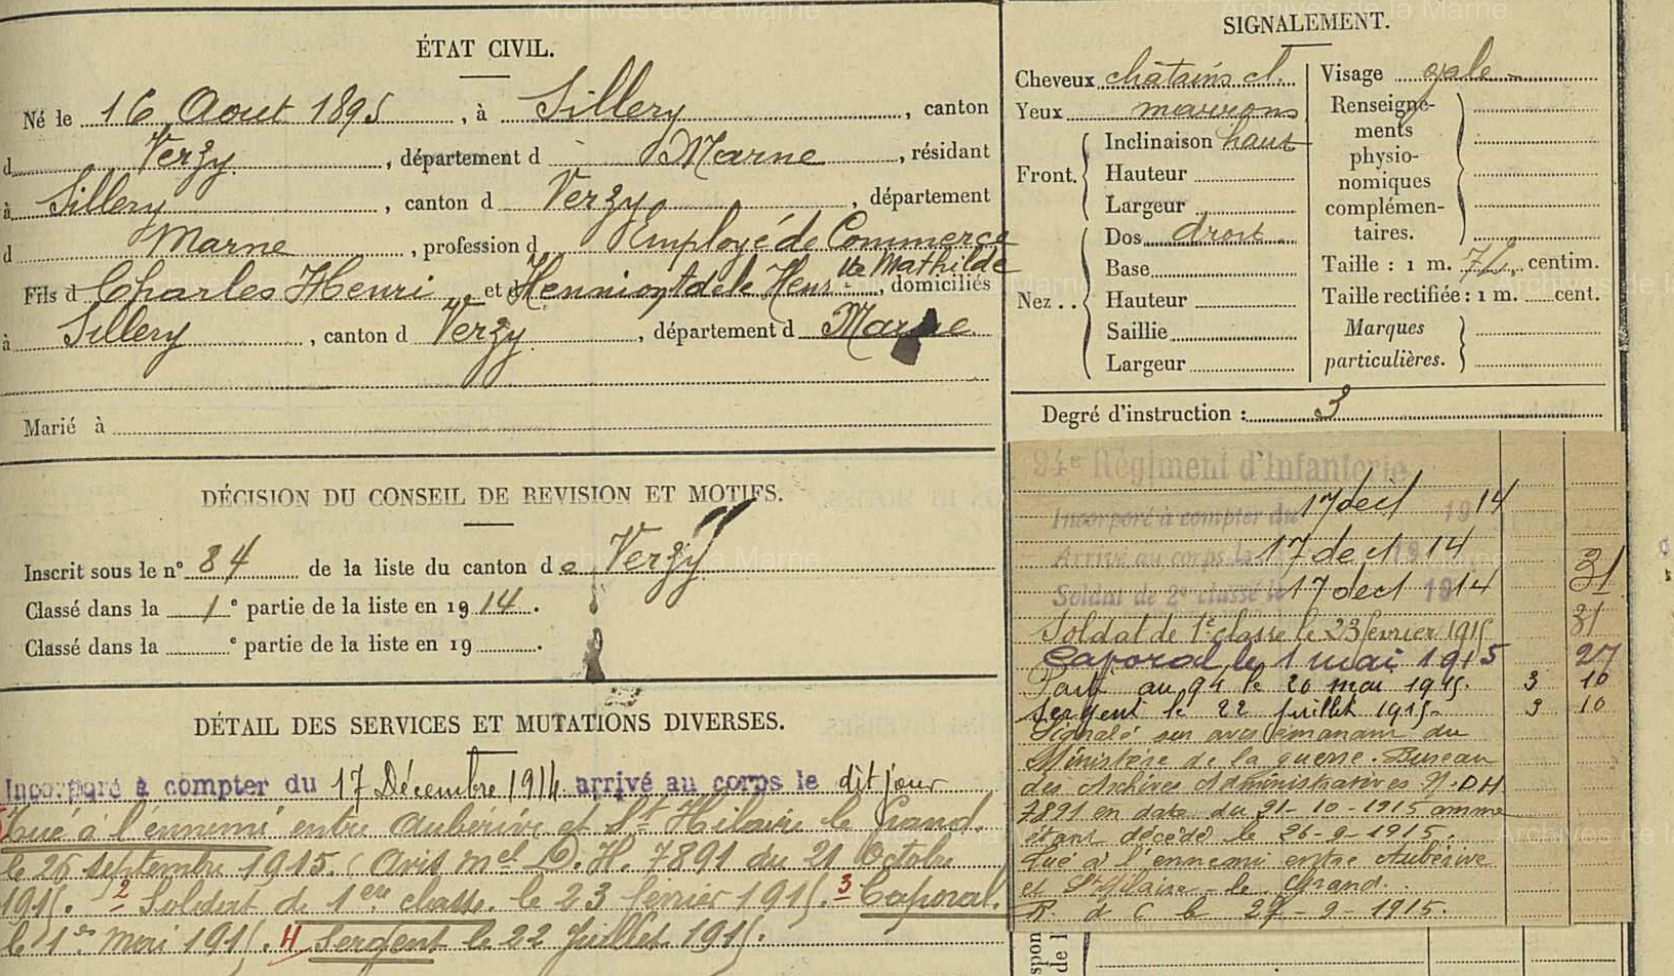 ÉTAT CIVIL.
Né le 16 Aout 1895, à Sillery, canton
d Verzy, département d Marne, résidant
à Sillery, canton d Verzy, département
d Marne, profession d Employé de Commerce
Fils d Charles Henri et d Hennion Adèle Henr.tte Mathilde, domiciliés
à Sillery, canton d Verzy, département d Marne
Marié à
DÉCISION DU CONSEIL DE REVISION ET MOTIFS.
Inscrit sous le n° 84 de la liste du canton de Verzy
Classé dans la 1e partie de la liste en 1914.
Classé dans la e partie de la liste en 19 .
DÉTAIL DES SERVICES ET MUTATIONS DIVERSES.
Incorporé à compter du 17 Décembre 1914 arrivé au corps le dit jour
Tué à l'ennemi entre Aubérive et St Hilaire le Grand.
le 26 septembre 1915. (Avis mel D.H. 7891 du 21 Octobre
1915. 2 Soldat de 1ere classe le 23 février 1915. 3 Caporal
le 1er mai 1915. 4 Sergent le 22 Juillet 1915.
SIGNALEMENT.
Cheveux châtains cl.
Yeux marrons
Front. Inclinaison haut
Hauteur
Largeur
Nez .. Dos droit
Base
Hauteur
Saillie
Largeur
Visage ovale
Renseigne-
ments
physio-
nomiques
complémen-
taires.
Taille : 1 m. 71 centim.
Taille rectifiée : 1 m. cent.
Marques
particulières.
Degré d'instruction : 3
94e Régiment d'Infanterie
Incorporé à compter du 17 dect 1914
Arrivé au corps le 17 dect 1914
Soldat de 2e classe le 17 dect 1914 31
Soldat de 1e classe le 23 fevrier 1915 31
Caporal le 1 mai 1915 27
Parti au 94 le 20 mai 1915. 3 10
Sergent le 22 Juillet 1915 3 10
Signalé sur avis émanant du
Ministère de la guerre. Bureau
des Archives Administratives N. DH
7891 en date du 21-10-1915 comme
étant décédé le 26-9-1915.
Tué à l'ennemi entre Aubérive
et St Hilaire-le Grand.
R. d C le 27-9-1915.
Archives de la Marne